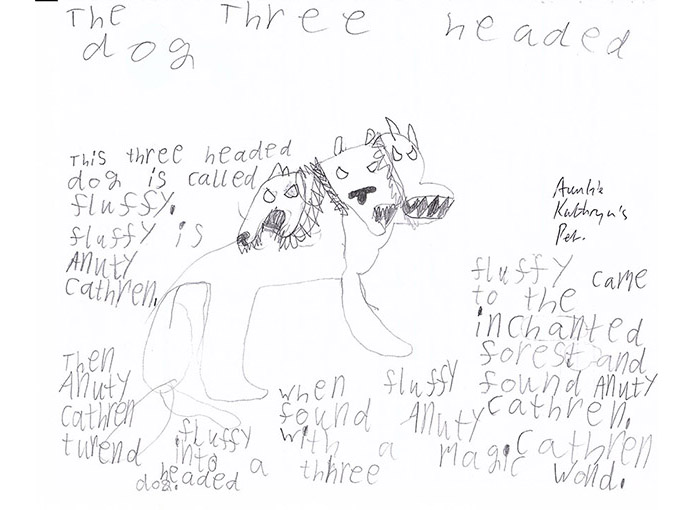 The Three Headed
dog
This three headed
dog is called
fluffy.
fluffy is
Anuty
Cathren.
Auntie
Kathryn's
Pet.
fluffy came
to the
inchanted
forest and
found Anuty
Cathren.
When fluffy
found Anuty Cathren
with a magic wond.
Then
Anuty
Cathren
turend
fluffy
into a thhree
headed
dog.